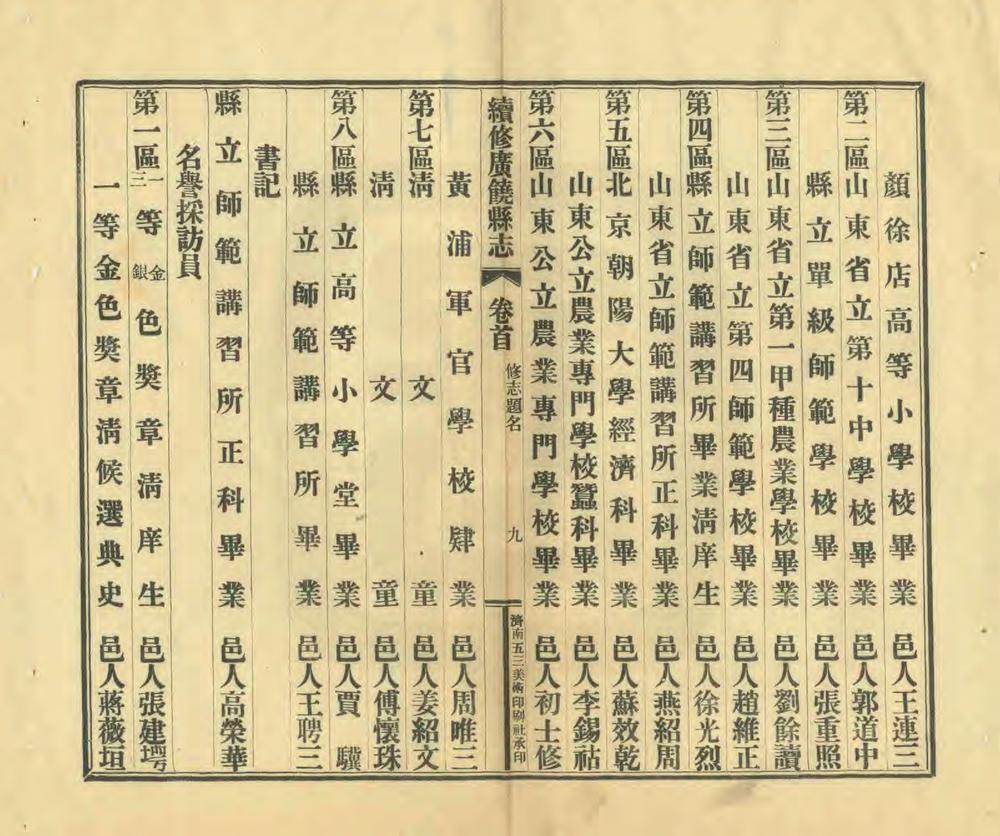 顏徐店高等小學校畢業　邑人王連三
第二區山東省立第十中學校畢業　邑人郭道中
縣立單級師範學校畢業　邑人張重照
第三區山東省立第一甲種農業學校畢業　邑人劉餘讀
山東省立第四師範學校畢業　邑人趙維正
第四區縣立師範講習所畢業淸庠生　邑人徐光烈
山東省立師範講習所正科畢業　邑人燕紹周
第五區北京朝陽大學經濟科畢業　邑人蘇效乾
山東公立農業專門學校蠶科畢業　邑人李錫祜
第六區山東公立農業專門學校畢業　邑人初士修
續修廣饒縣志　卷首　修志題名　九　濟南五三美術印刷社承印
黃浦軍官學校肄業　邑人周唯三
第七區淸文童　邑人姜紹文
淸文童　邑人傅懷珠
第八區縣立高等小學堂畢業　邑人賈驥
縣立師範講習所畢業　邑人王聘三
書記
縣立師範講習所正科畢業　邑人高榮華
名譽採訪員
第一區一三等金銀色獎章淸庠生　邑人張建堮
一等金色獎章淸候選典史　邑人蔣薇垣